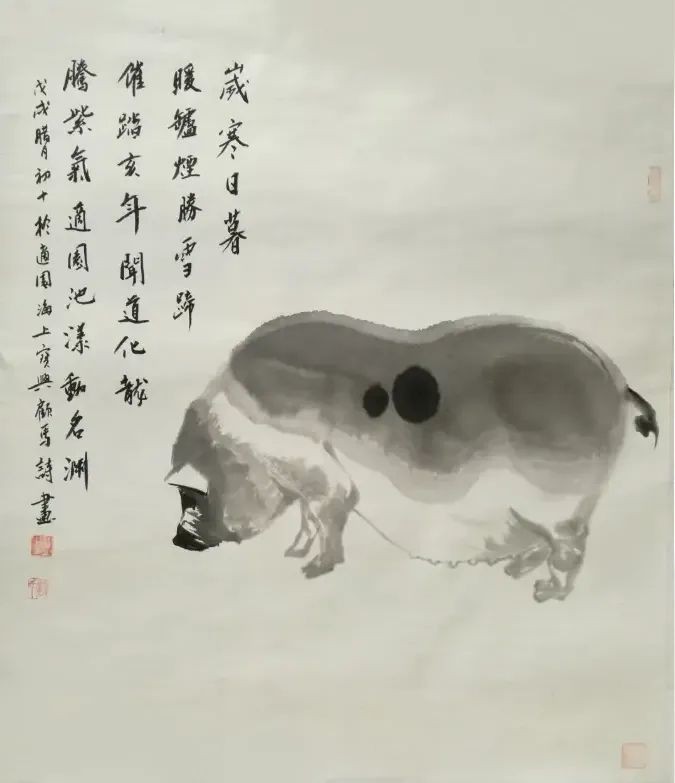 歲寒日暮
暖鑪煙勝雪蹄
催踏亥年聞道化龍
騰紫氣適園池漾動名淵
戊戌腊月初十於適園海上寶興顧馬詩畫